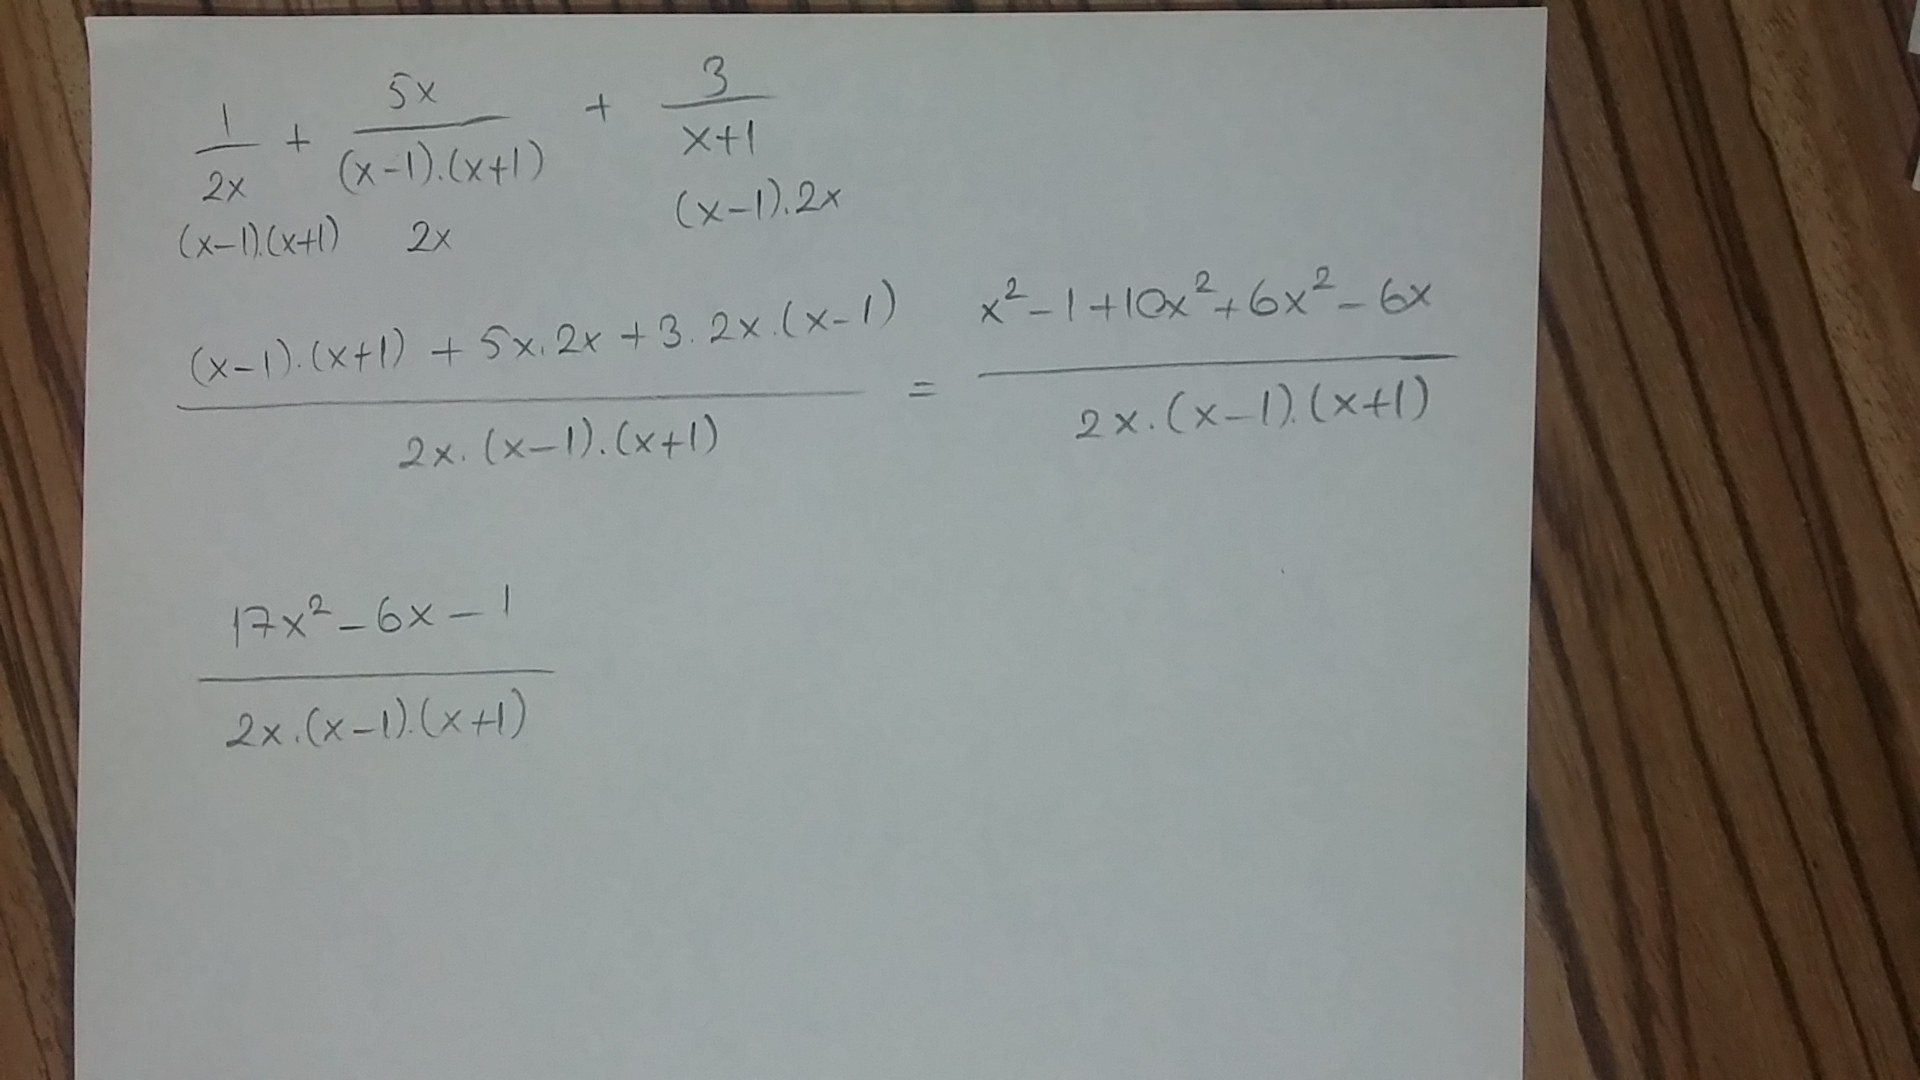 1/2x + 5x/(x-1).(x+1) + 3/x+1
(x-1).(x+1) 2x (x-1).2x
(x-1).(x+1) + 5x.2x + 3.2x.(x-1)/2x.(x-1).(x+1) = x²-1+10x²+6x²-6x/2x.(x-1).(x+1)
17x²-6x-1/2x.(x-1).(x+1)